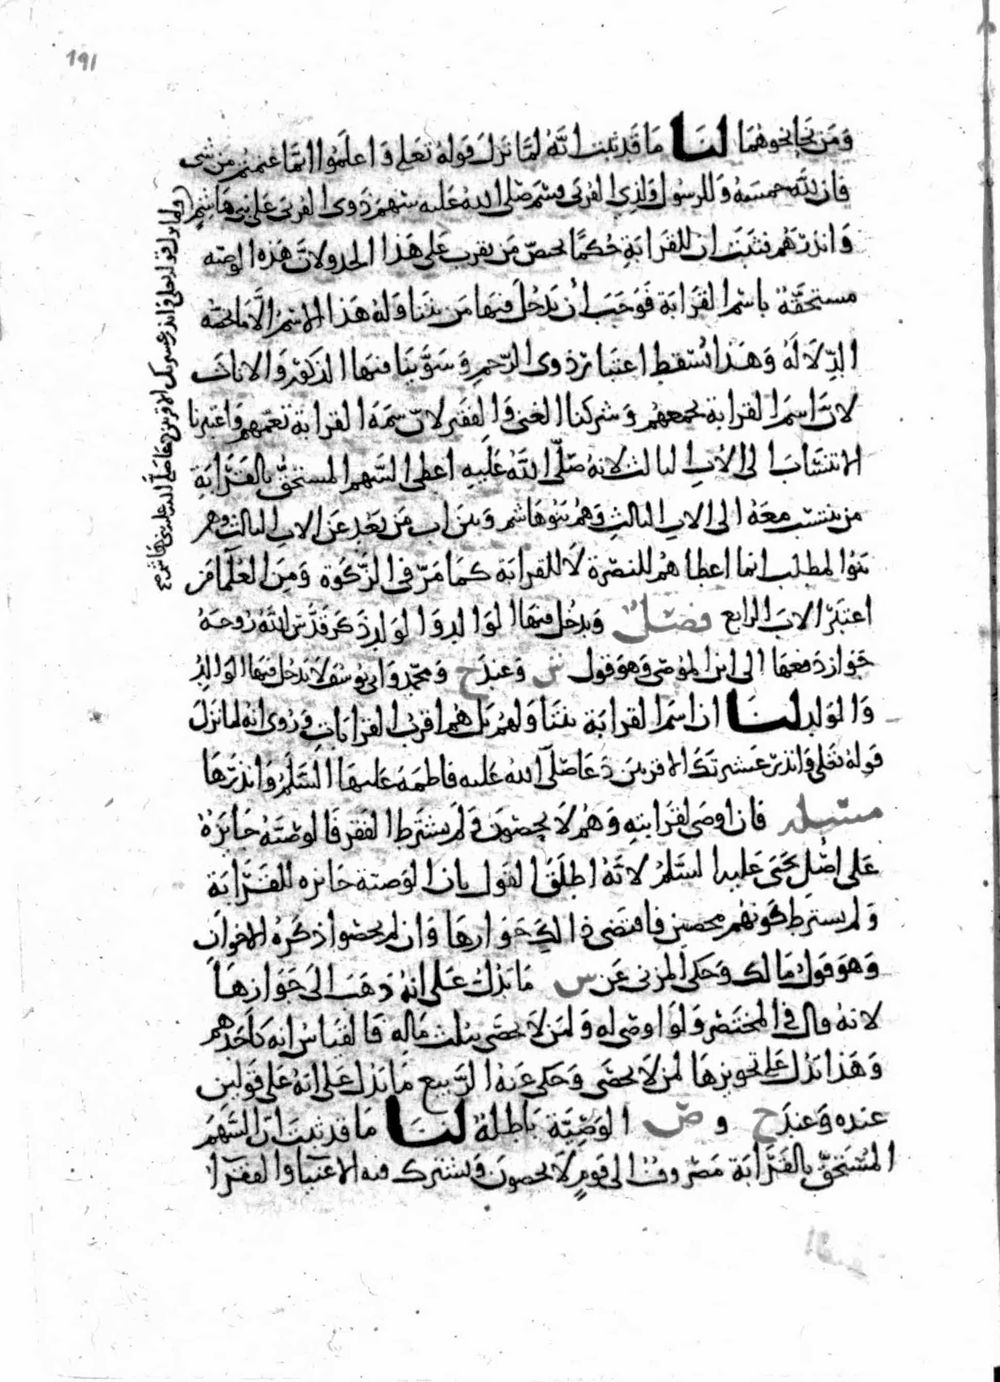 191
ومن نحا نحوهما لنا ما قد ثبت انه لما نزل قوله تعلى واعلموا انما غنمتم من شى
فان لله خمسه وللرسول ولذى القربى قسم صلى الله عليه سهم ذوى القربى على بنى هاشم
وانذرهم فثبت ان للقرابة حكما يخص من يقرب على هذا الحد ولان هذه الوصية
مستحقة باسم القرابة فوجب ان يدخل فيها من يتناوله هذا الاسم الا ما خصه
الدلالة وهذا يسقط اعتبار ذوى الرحم وسوينا فيها الذكور والاناث
لان اسم القرابة يجمعهم وشركنا الغنى والفقير لان سمة القرابة تعمهم واعتبرنا
الانتساب الى الاب الثالث لانه صلى الله عليه اعطى السهم المستحق بالقرابة
من ينتسب معه الى الاب الثالث وهم بنو هاشم وبين اب من بعد عن الاب الثالث وهم
بنو المطلب انما اعطاهم للنصرة لا للقرابة كما مر فى الزكوة ومن العلما من
اعتبر الاب الرابع فصل ويدخل فيها الوالد والولد ذكر قدس الله روحه
جواز دفعها الى ابن الموصى وهو قول ش وعند ح ومحمد وابى يوسف لا يدخل فيها الوالد
والولد لنا ان اسم القرابة يتناولهم بل هم اقرب القرابات وروى انه لما نزل
قوله تعلى وانذر عشيرتك الاقربين دعا صلى الله عليه فاطمة عليها السلم وانذرها
مسئلة فان اوصى لقرابته وهم لا يحصون ولم يشترط الفقر فالوصية جائزة
على اصل يحيى عليه السلم لانه اطلق القول بان الوصية جائزه للقرابة
ولم يشترط كونهم محصين فاقتضى ذالك جوازها وان لم يحصوا ذكره الاخوان
وهو قول مالك وحكى المزنى عن س ما يدل على انه ذهب الى جوازها
لانه قال فى المختصر ولو اوصى له ولمن لا يحصى بثلث ماله فالقياس انه كاحدهم
وهذا يدل على تجويزها لمن لا يحصى وحكى عنه الربيع ما يدل على انه على قولين
عنده وعند ح و ص الوصية باطلة لنا ما قد ثبت ان السهم
المستحق بالقرابة مصروف الى قوم لا يحصون ويشترك فيه الاغنيا والفقرا
ولما نزل قوله تعلى وانذر عشيرتك الاقربين دعا صلى الله عليه بنى هاشم صح